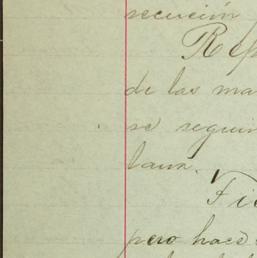 secución
Rep
de las ma
se seguir
laux.
Fis
pero hace